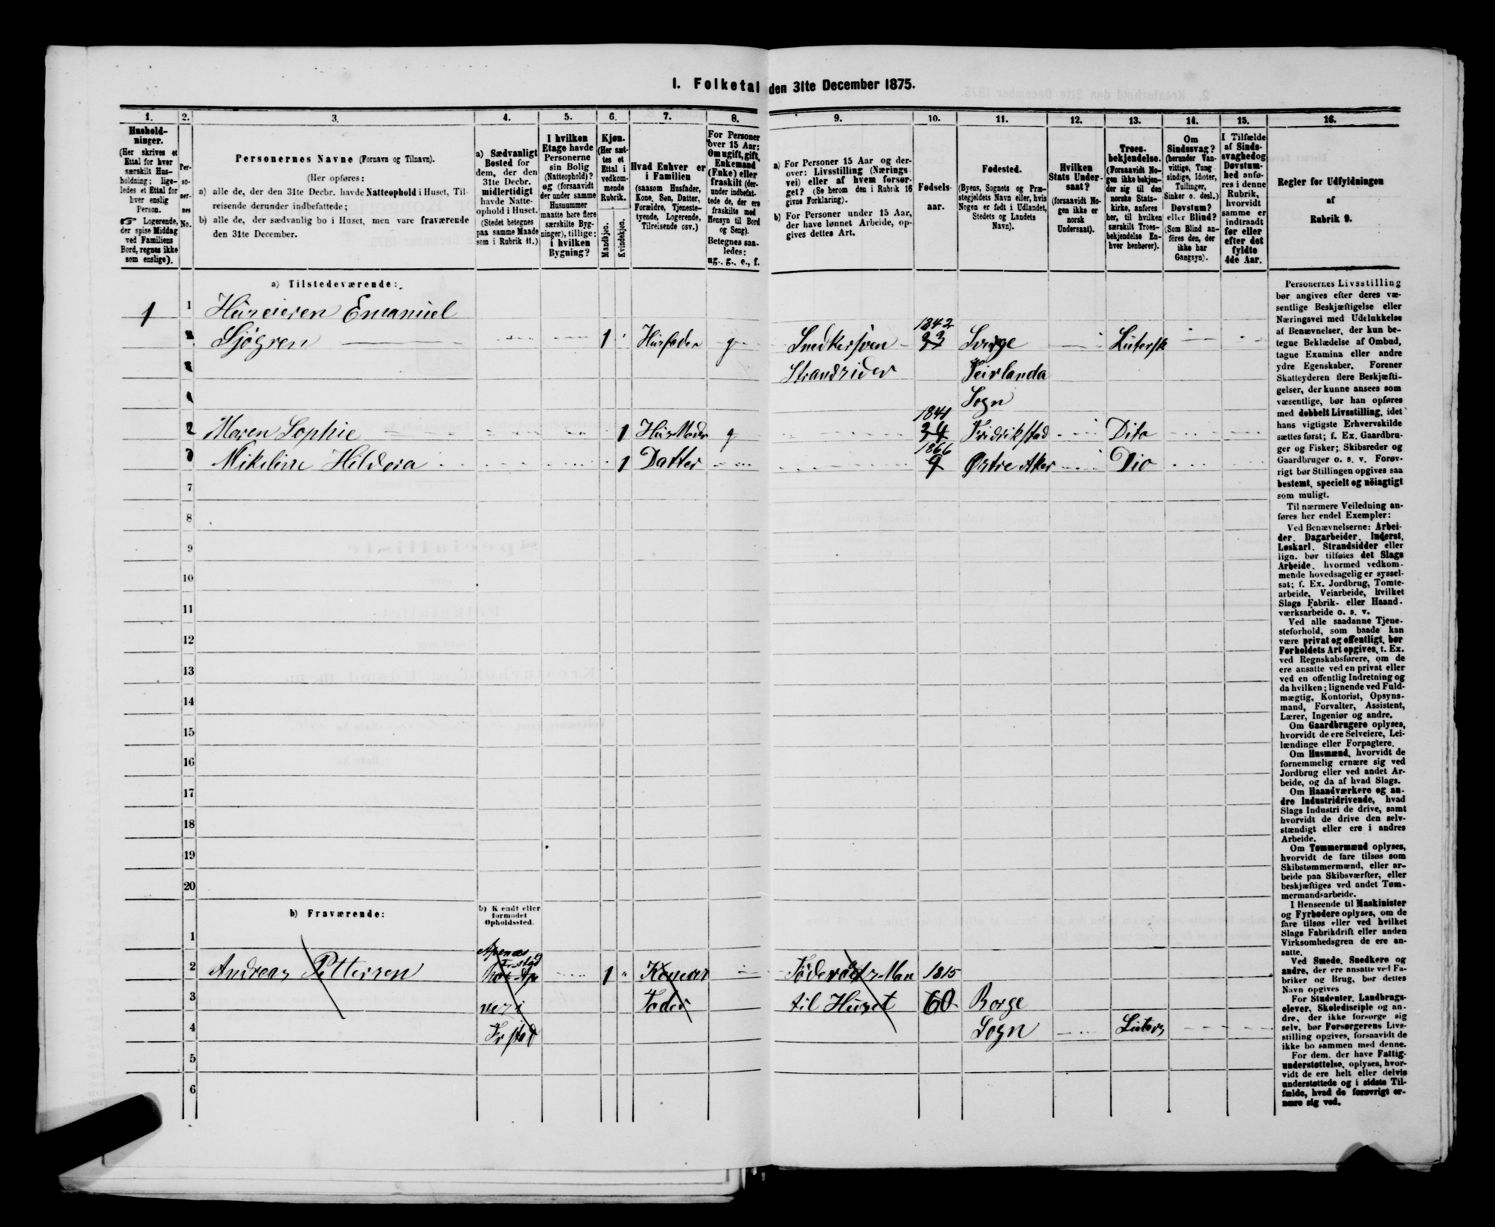 I. Folketal den 31te December 1875.
1. 2. 3. 4. 5. 6. 7. 8. 9. 10. 11. 12. 13. 14. 15. 16.
Hushold-
ninger.
(Her skrives et
Ettal for hver
særskilt Hus-
holdning; lige-
ledes et Ettal for
hver enslig
Person.
Logerende,
der spise Middag
ved Familiens
Bord, regnes ikke
som enslige).
Per-
so-
ner-
nes
No.
Personernes Navne (Fornavn og Tilnavn).
(Her opføres:
a) alle de, der den 31te Decbr. havde Natteophold i Huset, Til-
reisende derunder indbefattede;
b) alle de, der sædvanlig bo i Huset, men vare fraværende
den 31te December.
a) Sædvanligt
Bosted for
dem, der den
31te Decbr.
midlertidigt
havde Natte-
ophold i Huset.
(Stedet betegnes
paa samme Maade
som i Rubrik 11.)
I hvilken
Etage havde
Personerne
sin Bolig?
(Natteophold)?
og (forsaavidt
der under samme
Husnummer
maatte høre flere
særskilte Byg-
ninger), tillige:
i hvilken
Bygning?
Kjøn.
(Her sæt-
tes et
Ettal i
vedkom-
mende
Rubrik.
Mandkjøn.
Kvindekjøn.
Hvad Enhver er
i Familien
(saasom Husfader,
Kone, Søn, Datter,
Forældre, Tjeneste-
tyende, Logerende,
Tilreisende osv.)
For Personer
over 15 Aar:
Om ugift, gift,
Enkemand
(Enke) eller
fraskilt (der-
under indbefat-
tede de, der ere
fraskilte med
Hensyn til Bord
og Seng).
Betegnes saa-
ledes:
ug., g., e., f.
a) For Personer 15 Aar og der-
over: Livsstilling (Nærings
vei) eller af hvem forsør-
get? (Se herom den i Rubrik 16
givne Forklaring).
b) For Personer under 15 Aar,
der have lønnet Arbeide, op-
gives dettes Art.
Fødsels-
aar.
Fødested.
(Byens, Sognets og Præ-
stegjeldets Navn eller, hvis
Nogen er født i Udlandet,
Stedets og Landets
Navn).
Hvilken
Stats Under-
saat?
(forsaavidt No-
gen ikke er
norsk
Undersaat).
Troes-
bekjendelse.
(Forsaavidt No-
gen ikke bekjen-
der sig til den
norske Stats-
kirke, anføres
her, til hvilken
særskilt Troes-
bekjendelse En-
hver henhører).
Om
Sindssvag?
(herunder Van-
vittige, Tung-
sindige, Idioter,
Tullinger,
Sinker o. desl.)
Døvstum?
eller Blind?
(Som Blind an-
føres den, der
ikke har
Gangsyn).
I Tilfælde
af Sinds-
svaghed og
Døvstum-
hed anfø-
res i denne
Rubrik,
hvorvidt
samme er
indtraadt
før eller
efter det
fyldte
4de Aar.
Regler for Udfyldningen
af
Rubrik 9.
a) Tilstedeværende:
1 1 Huseieren Emanuel
Sjögren 1 Husfader g Snedkersven 1842 33 Sverge Lutersk
Strandsider Veirlanda
Sogn
2 Maren Sophie 1 Hus Moder g 1841 34 Fridrikstad Dito
3 Mikeline Hildora 1 Datter 1866 9 Østre Aker Dio
7
8
9
10
11
12
13
14
15
16
17
18
19
20
b) Fraværende:
b) Kendt eller
formodet
Opholdssted.
1
2 Andreas Pettersen 1 Konens Føderaads-Man 1815
3 Fader til Huset 60 Borge
4 Fr stad Sogn Luters
5
6
Personernes Livsstilling
bør angives efter deres væ-
sentlige Beskjæftigelse eller
Næringsvei med Udelukkelse
af Benævnelser, der kun be-
tegne Beklædelse af Ombud,
tagne Examina eller andre
ydre Egenskaber. Forener
Skatteyderen flere Beskjæfti-
gelser, der kunne ansees som
væsentlige, bør han opføres
med dobbelt Livsstilling, idet
hans vigtigste Erhvervskilde
sættes først; f. Ex. Gaardbru-
ger og Fisker; Skibsreder og
Gaardbruger o. s. v. Forøv-
rigt bør Stillingen opgives saa
bestemt, specielt og nöiagtigt
som muligt.
Til nærmere Veiledning an-
føres her endel Exempler:
Ved Benævnelserne: Arbei-
der, Dagarbeider, Inderst,
Løskarl, Strandsidder eller
lign. bør tilføies det Slags
Arbeide, hvormed vedkom-
mende hovedsagelig er syssel-
sat; f. Ex. Jordbrug, Tomte-
arbeide, Veiarbeide, hvilket
Slags Fabrik- eller Haand-
værksarbeide o. s. v.
Ved alle saadanne Tjene-
steforhold, som baade kan
være privat og offentligt, bør
Forholdets Art opgives, t. Ex.
ved Regnskabsførere, om de
ere ansatte ved en privat eller
ved en offentlig Indretning og
da hvilken; lignende ved Fuld-
mægtig, Kontorist, Opsyns-
mand, Forvalter, Assistent,
Lærer, Ingeniør og andre.
Om Gaardbrugere oplyses,
hvorvidt de ere Selveiere, Lei-
lændinge eller Forpagtere.
Om Husmænd, hvorvidt de
fornemmelig ernære sig ved
Jordbrug eller ved andet Ar-
beide, og da af hvad Slags.
Om Haandværkere og an-
dre Industridrivende, hvad
Slags Industri de drive, samt
hvorvidt de drive den selv-
stændigt eller ere i andres
Arbeide.
Om Tømmermænd oplyses,
hvorvidt de fare tilsøs som
Skibstømmermænd, eller ar-
beide paa Skibsværfter, eller
beskjæftiges ved andet Tøm-
mermandsarbeide.
I Henseende til Maskinister
og Fyrbødere oplyses, om de
fare tilsøs eller ved hvilket
Slags Fabrikdrift eller anden
Virksomhedsgren de ere an-
satte.
Ved Smede, Snedkere og
andre, der ere ansatte ved Fa-
briker og Brug, bør dettes
Navn opgives
For Studenter, Landbrugs-
elever, Skoledisciple og an-
dre, der ikke forsørge sig
selv, bør Forsørgerens Livs-
stilling opgives, forsaavidt de
ikke bo sammen med denne.
For dem, der have Fattig-
understøttelse, oplyses, hvor-
vidt de ere helt eller delvis
understøttede og i sidste Til-
fælde, hvad de forøvrigt er-
nære sig ved.